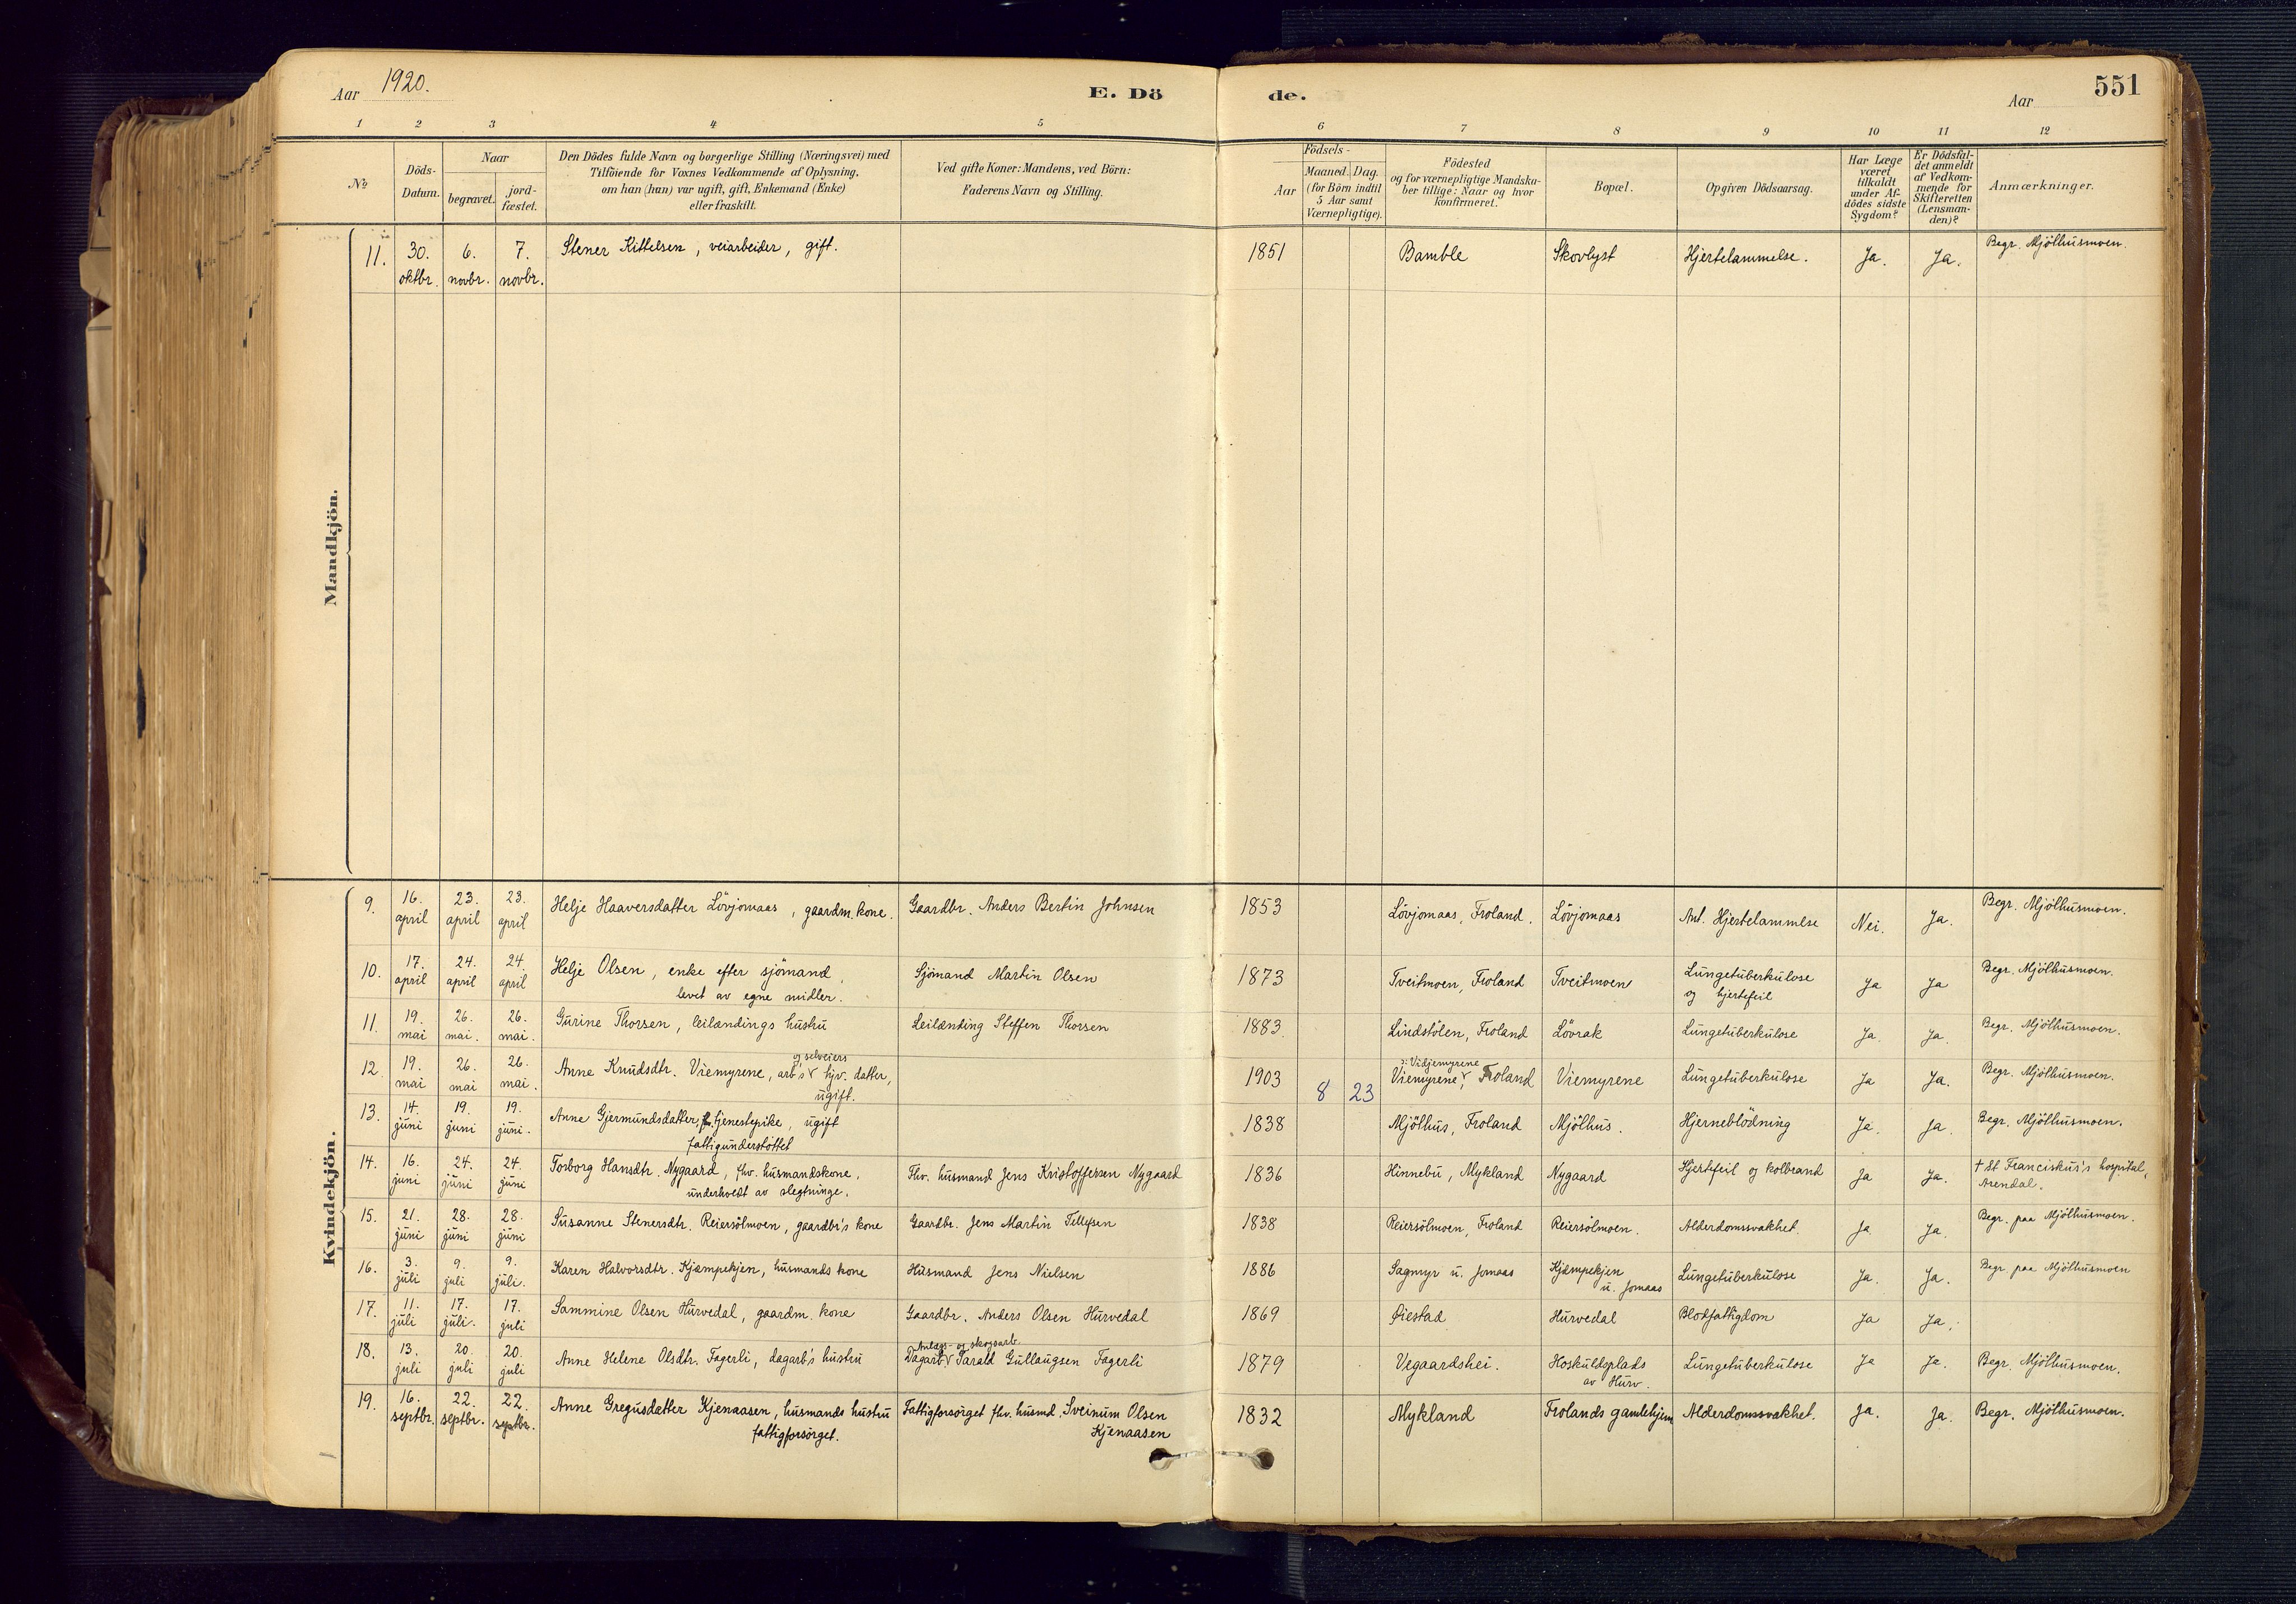 Aar 1920.
E. Dö de.
Aar
551
1 2 3 4 5 6 7 8 9 10 11 12
№
Döds-
Datum.
Naar
begravet.
jord-
fæstet.
Den Dödes fulde Navn og borgerlige Stilling (Næringsvei) med
Tilföiende for Voxnes Vedkommende af Oplysning,
om han (hun) var ugift, gift, Enkemand (Enke)
eller fraskilt.
Ved gifte Koner: Mandens, ved Børn:
Faderens Navn og Stilling.
Födsels-
Aar
Maaned. Dag.
(for Börn indtil
5 Aar samt
Værnepligtige).
Födested
og for værnepligtige Mandska-
ber tillige: Naar og hvor
konfirmeret.
Bopæl.
Opgiven Dödsaarsag.
Har Læge
været
tilkaldt
under Af-
dödes sidste
Sygdom?
Er Dödsfal-
det anmeldt
af Vedkom-
mende for
Skifteretten
(Lensman-
den)?
Anmærkninger.
Mandkjön.
11. 30. oktbr. 6. novbr. 7. novbr. Stener Kittelsen, veiarbeider, gift. 1851 Bamble Skovlyst Hjertelammelse. Ja. Ja. Begr. Mjölhusmoen.
Kvindekjön.
9. 16. april 23. april 23. april Helje Haaversdatter Lövjomaas, gaardm. kone. Gaardbr. Anders Bertin Johnsen 1853 Lövjomaas, Froland. Lövjomaas Ant. Hjertelammelse Nei. Ja. Begr. Mjölhusmoen.
10. 17. april 24. april 24. april Helje Olsen, enke efter sjömand, Sjömand Martin Olsen 1873 Tveitmoen, Froland Tveitmoen Lungetuberkulose Ja Ja Begr. Mjölhusmoen.
levet av egne midler. og hjertefeil
11. 19. mai 26. mai. 26. mai. Gurine Thorsen, leilændings hustru Leilænding Steffen Thorsen 1883 Lindstölen, Froland Lövrak Lungetuberkulose Ja. Ja. Begr. Mjölhusmoen.
og selveiers ɔ: Vidjemyrene
12 19. mai 26. mai 26. mai. Anne Knudsdtr. Viemyrene, arb's hjv. datter, 1903 8 23 Viemyrene, Froland Viemyrene Lungetuberkulose Ja Ja. Begr. Mjölhusmoen.
ugift.
13. 14. juni 19. juni 19. juni. Anne Gjermundsdatter, f. tjenestepike, ugift 1838 Mjölhus, Froland Mjölhus. Hjerneblödning Ja. Ja. Begr. Mjölhusmoen.
fattigunderstöttet
14. 16. juni 24. juni 24. juni Torborg Hansdtr. Nygaard, fhv. husmandskone, Fhv. husmand Jens Kristoffersen Nygaard 1836 Hinnebu, Mykland Nygaard Hjertefeil og kolbrand Ja Ja. † St Franciskus's hospital,
underholdt av slegtninge. Arendal.
15. 21. juni 28. juni 28. juni Susanne Stenersdtr. Reiersölmoen, gaardbr's kone Gaardbr. Jens Martin Tellefsen 1838 Reiersölmoen, Froland Reiersölmoen. Alderdomssvakhet. Ja Ja. Begr. paa Mjölhusmoen.
16. 3. juli 9. juli 9. juli. Karen Halvorsdtr. Kjæmpekjen, husmands kone Husmand Jens Nielsen 1886 Sagmyr u. Jomaas Kjæmpekjen Lungetuberkulose Ja. Ja. Begr. paa Mjölhusmoen
u. Jomaas
17. 11. juli 17. juli. 17. juli Sammine Olsen Hurvedal, gaardm. kone Gaardbr. Anders Olsen Hurvedal 1869 Øiestad Hurvedal Blodfattigdom Ja Ja.
Anlegs- og skogsarb.
18. 13. juli 20. juli 20. juli Anne Helene Olsdtr. Fagerli, dagarb's hustru Dagarb. Tarald Gullaugsen Fagerli 1879 Vegaardshei. Hoskuldsplads Lungetuberkulose Ja Ja. Begr. Mjölhusmoen.
av Hurv.
19. 16. septbr. 22. septbr. 22. septbr. Anne Gregusdatter Kjenaasen, husmands hustru Fattigforsörget fhv. husmd. Sveinum Olsen 1832 Mykland Frolands gamlehjem Alderdomssvakhet. Ja. Ja. Begr. Mjölhusmoen.
fattigforsörget. Kjenaasen